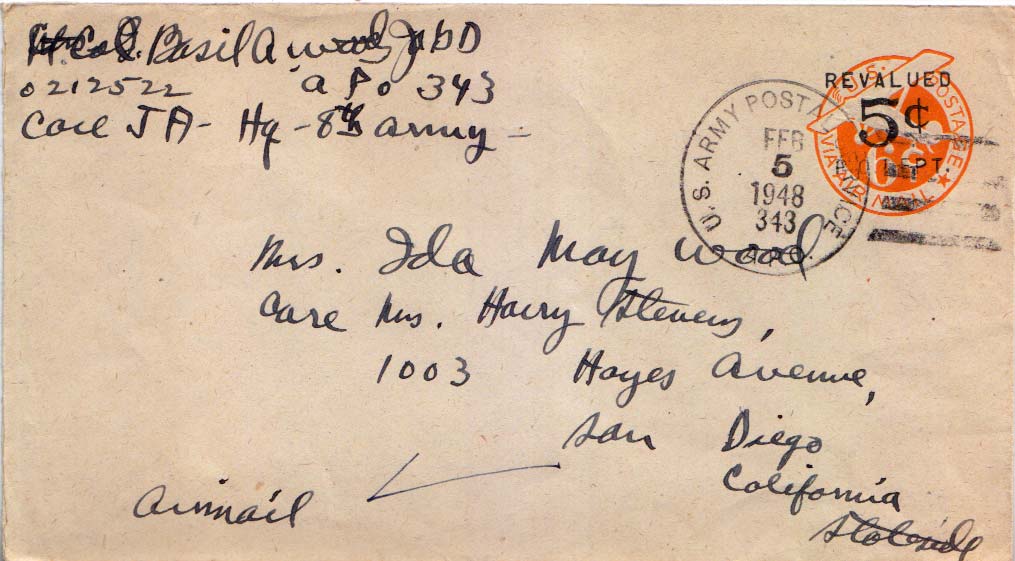 Lt. Col. Basil A Wood JAGD
0212522 APO 343
Care JA - Hq - 8th army -
REVALUED
5¢
P.O. DEPT.
U.S. POSTAGE
VIA AIR MAIL
6¢
U.S. ARMY POSTAL SERVICE
FEB
5
1948
343
A.P.O.
Mrs. Ida May Wood
Care Mrs. Harry Stevens,
1003 Hayes Avenue,
San Diego
California
Stateside
Airmail